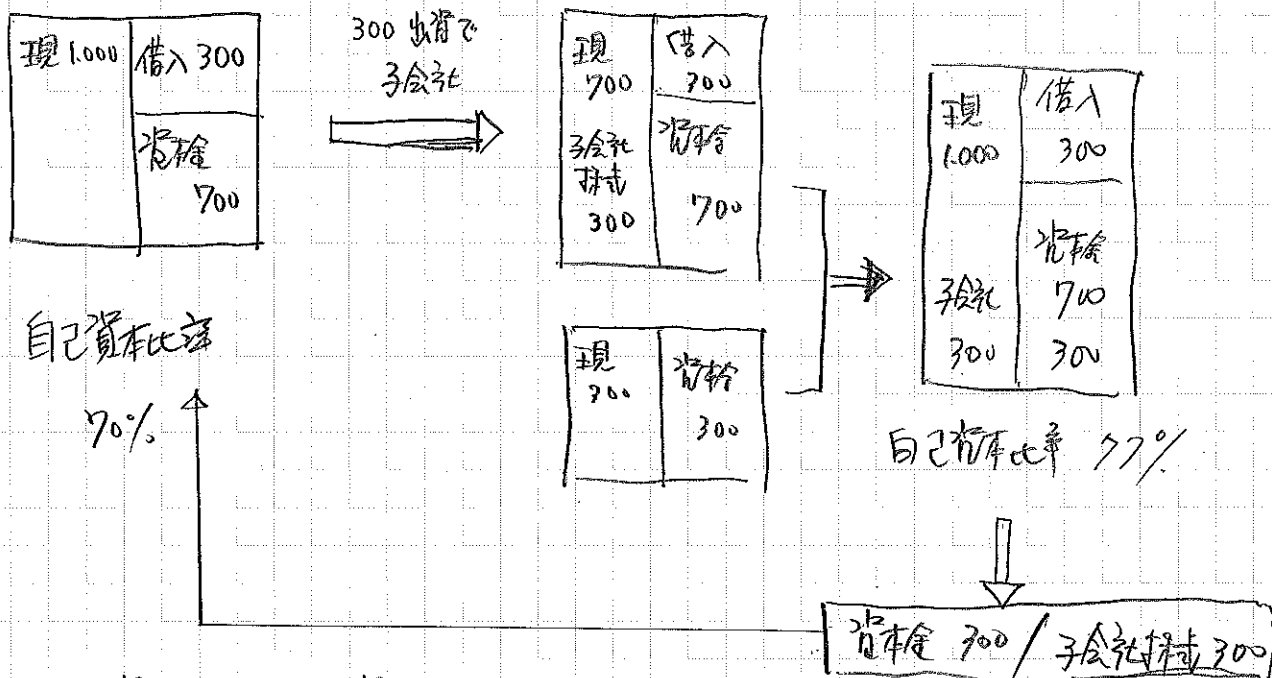 現 1.000
借入 300
資本金
700
300 出資で
子会社
現
700
借入
300
子会社
株式
300
資本金
700
現
300
資本金
300
現
1.000
借入
300
子会社
300
資本金
700
300
自己資本比率
70%
自己資本比率 77%
資本金 300 / 子会社株式 300